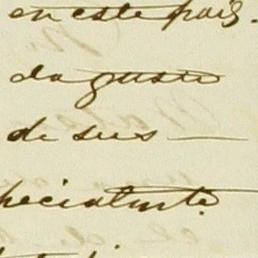 en este pais.
da gusto
de sus
pecialmte.